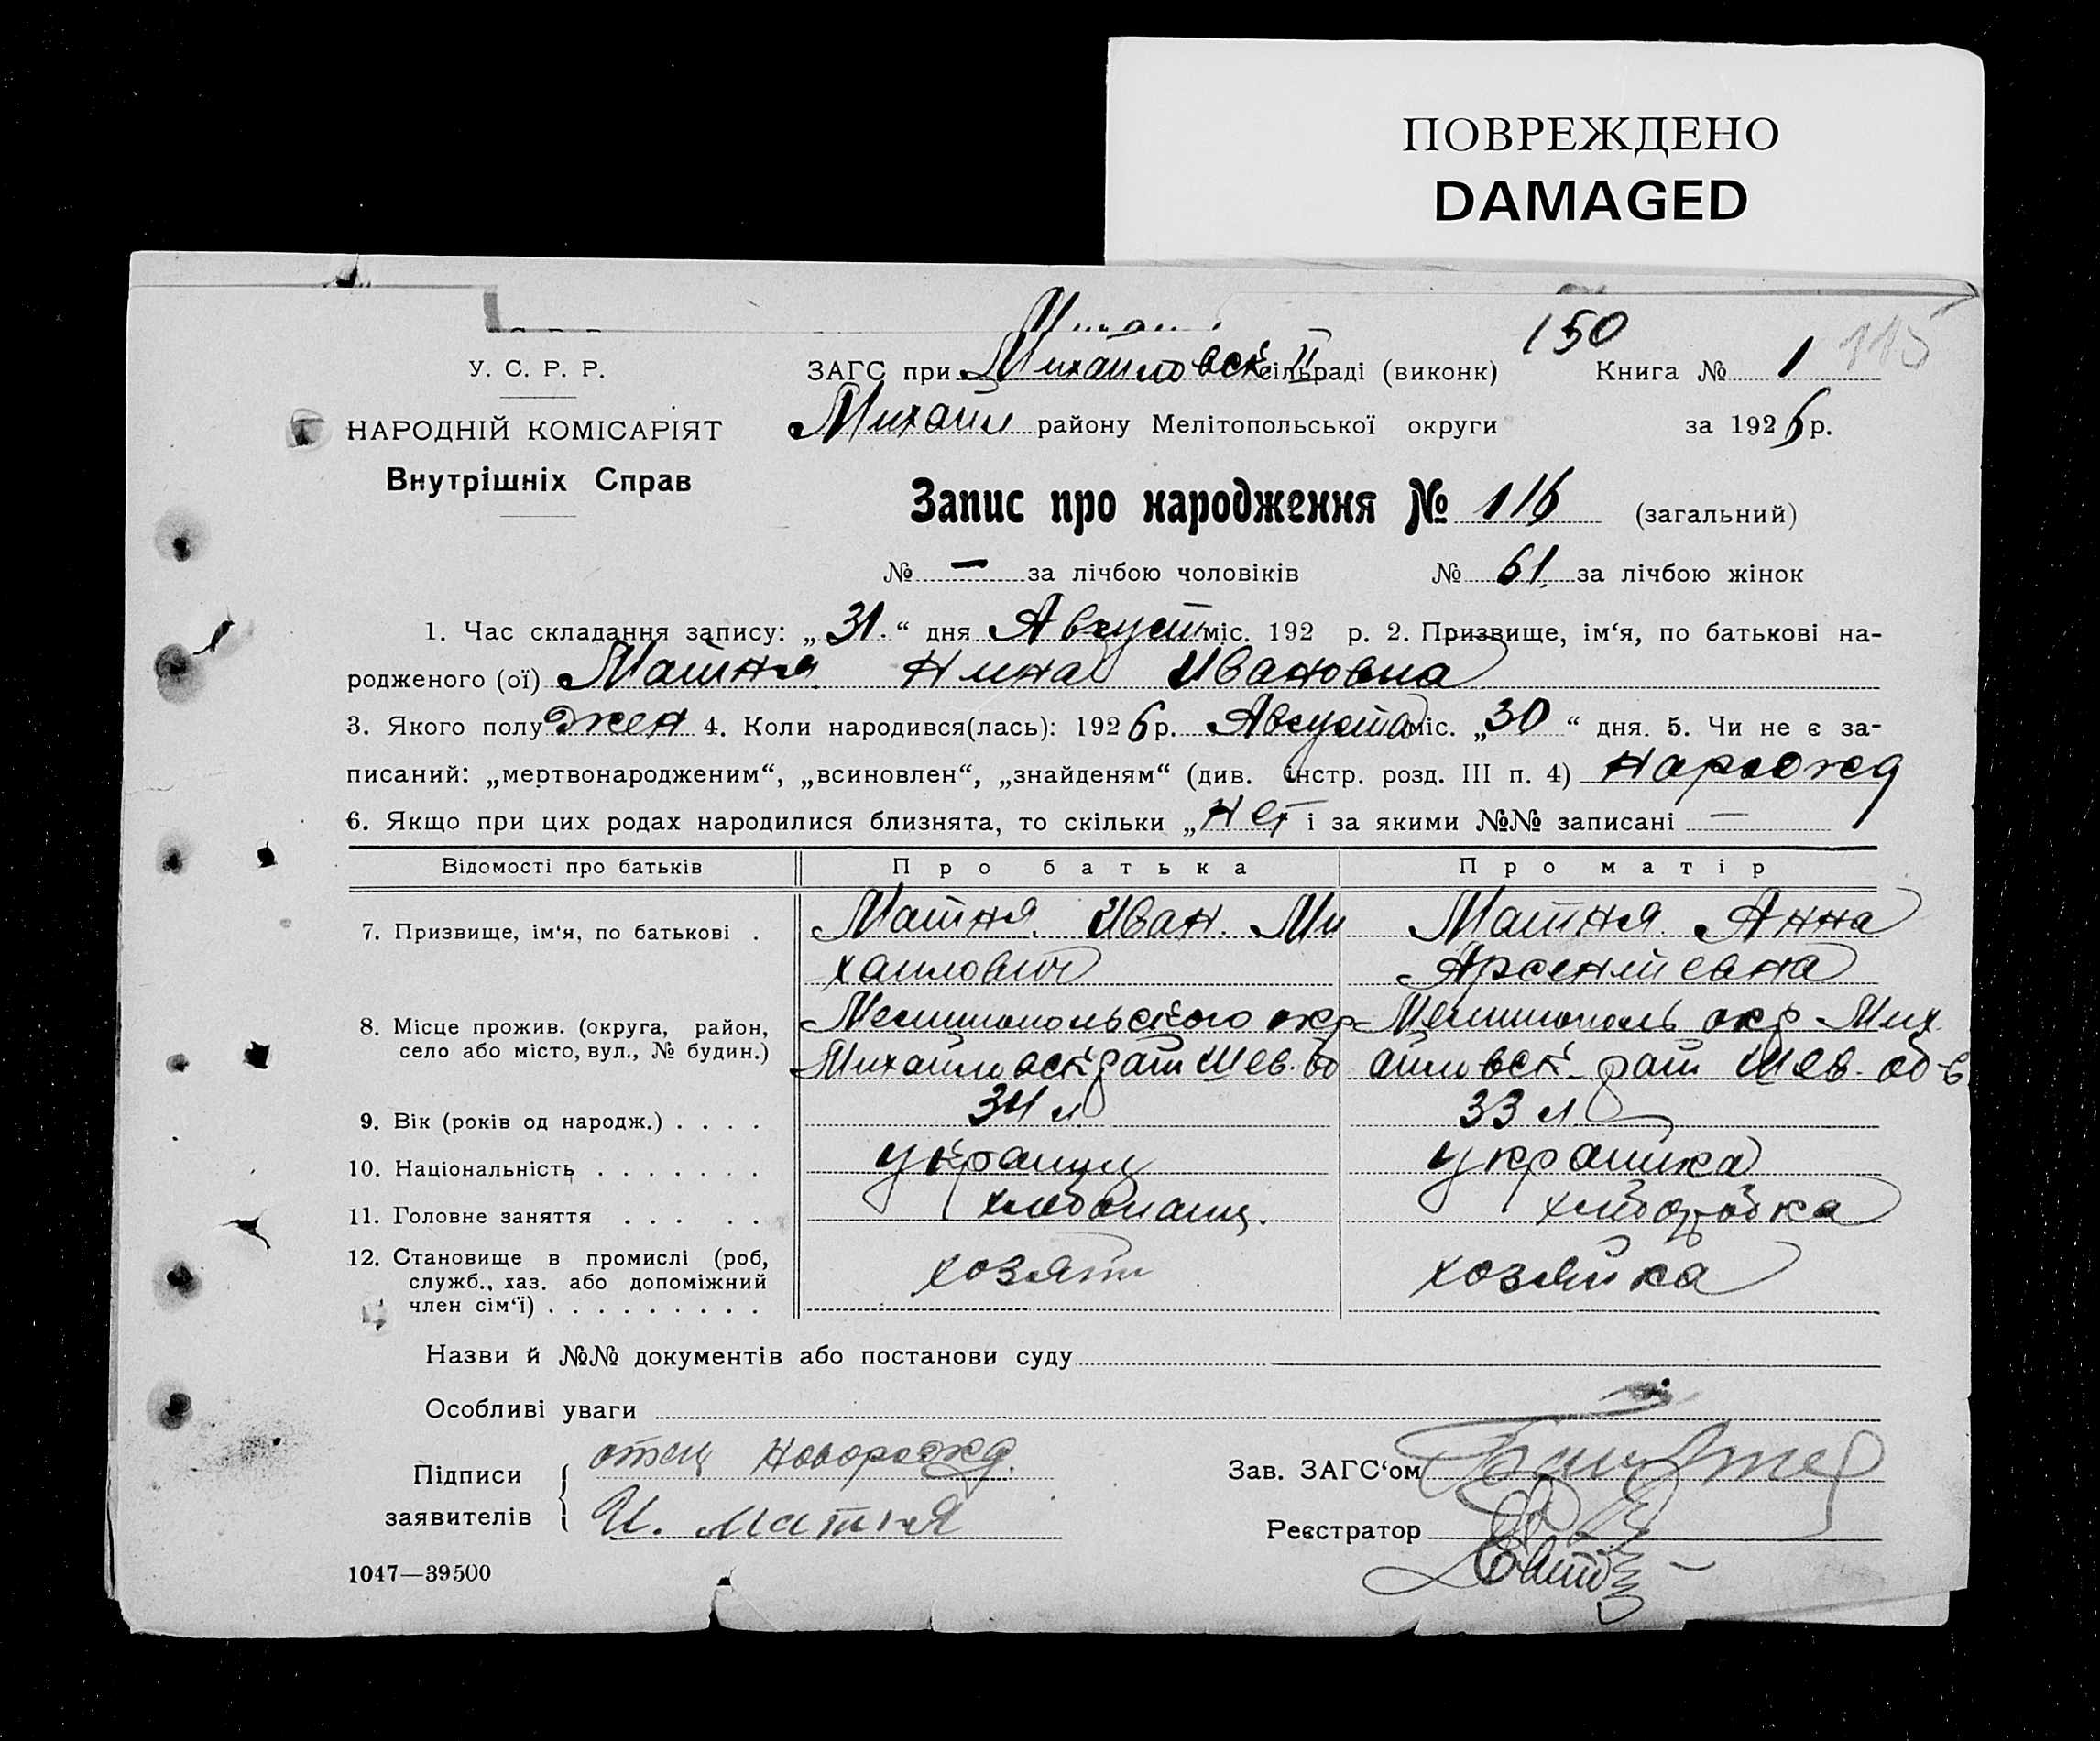 ПОВРЕЖДЕНО
DAMAGED
150
У. С. Р. Р.
ЗАГС при Михайловск. II сільраді (виконк) Книга № 1 115
НАРОДНІЙ КОМІСАРІЯТ
Михайл району Мелітопольської округи за 1926 р.
Внутрішніх Справ
Запис про народження № 116 (загальний)
№ — за лічбою чоловіків № 61. за лічбою жінок
1. Час складання запису: „31.“ дня Август міс. 192 р. 2. Призвище, ім‘я, по батькові на-
родженого (ої) Матня Нина Ивановна
3. Якого полу жен 4. Коли народився(лась): 1926 р. Августа міс. „30“ дня. 5. Чи не є за-
писаний: „мертвонародженим“, „всиновлен“, „знайденям“ (див. інстр. розд. III п. 4) нарожд
6. Якщо при цих родах народилися близнята, то скільки „Нет і за якими №№ записані —
Відомості про батьків Про батька Про матір
7. Призвище, ім‘я, по батькові . Матня. Иван. Ми Матня Анна
хаилович Арсентиевна
8. Місце прожив. (округа, район, Мелитопольского окр Мелитополь окр Мих
село або місто, вул., № будин.) Михайловск. рай Шев. об айловск. рай Шев. об-в
9. Вік (років од народж.) . . . . 34 л 33 л
10. Національність . . . . . . . украинц украинка
11. Головне заняття . . . . . хлебопашц. хлiборобка
12. Становище в промислі (роб,
служб., хаз. або допоміжний хозяин хозяйка
член сім‘ї) . . . . . . . . .
Назви й №№ документів або постанови суду
Особливі уваги
Підписи отецНоворожд.
Зав. ЗАГС‘ом
заявителів И. Матня
Реєстратор
1047—39500